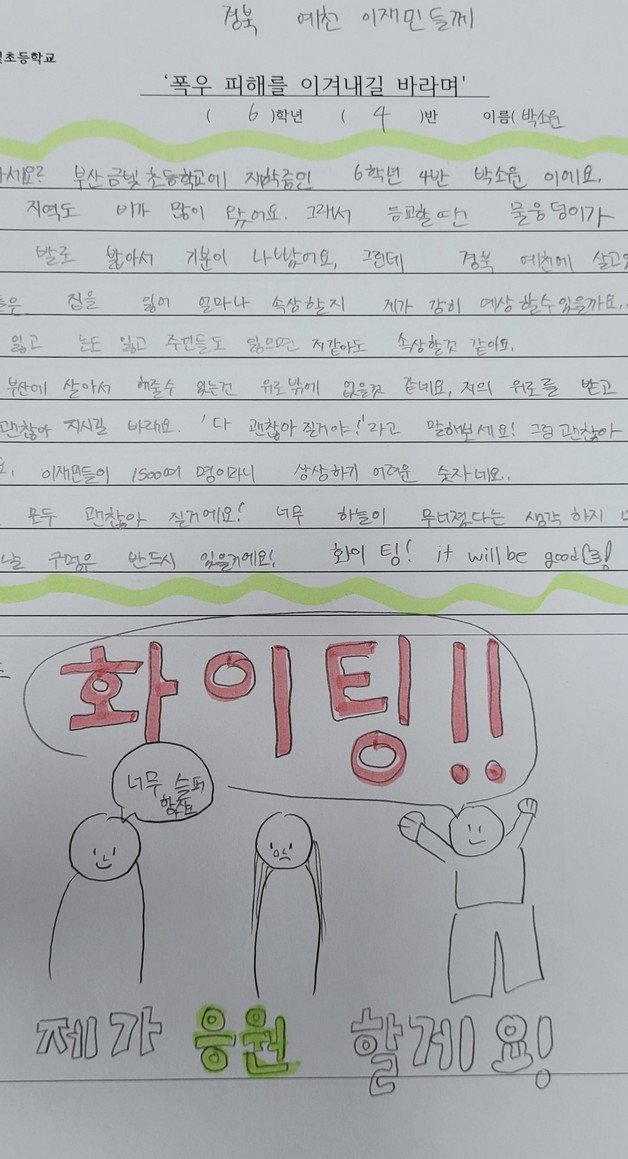 경북 예천 이재민들께
초등학교
'폭우 피해를 이겨내길 바라며'
( 6 )학년 ( 4 )반 이름( 박소윤
세요? 부산금빛초등학교에 재학중인 6학년 4반 박소윤 이에요.
지역도 비가 많이 왔어요. 그래서 등교할 땐 물웅덩이가
발로 밟아서 기분이 나빴어요, 그런데 경북 예천에 살고
들은 집을 잃어 얼마나 속상할지 제가 감히 예상할수있을까요..
잃고 논도 잃고 주민들도 잃으면 저같아도 속상할것 같아요.
부산에 살아서 해줄수 있는건 위로밖에 없을것 같네요, 저의 위로를 받고
괜찮아 지시길 바래요. '다 괜찮아 질거야!'라고 말해보세요! 그럼 괜찮아
요. 이재민들이 1500여 명이라니 상상하기 어려운 숫자네요..
모두 괜찮아 질거에요! 너무 하늘이 무너졌다는 생각 하지
날 구멍은 반드시 있을거에요! 화이팅! it will be good
화이팅!!
너무 슬퍼
제가 응원 할게요!